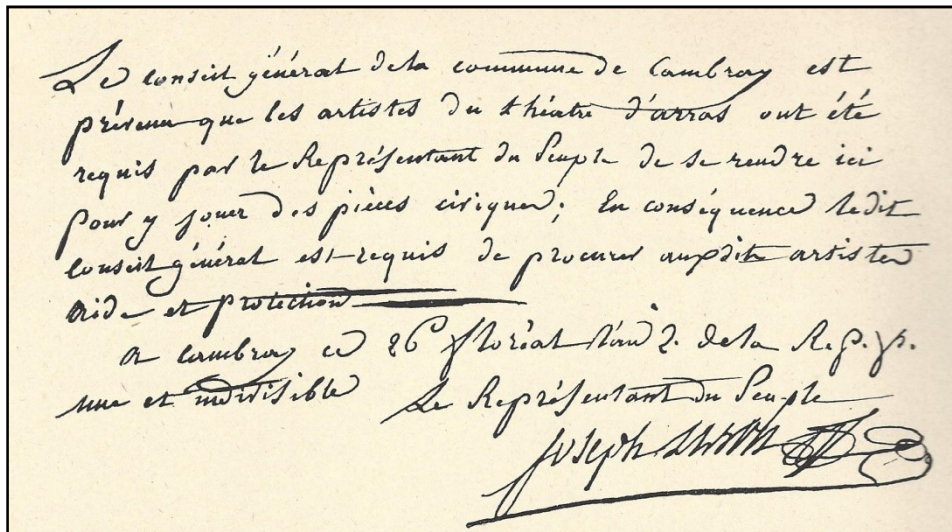 Le Conseil général de la commune de Cambray est
prévenu que les artistes du théatre d'arras ont été
requis par le Représentant du Peuple de se rendre ici
pour y jouer des pièces civiques; En conséquence ledit
Conseil général est requis de procurer auxdits artistes
aide et protection
a Cambray ce 26 floréal l'an 2. de la Rep. fr.
une et indivisible
Le Représentant du Peuple
Joseph Lebon